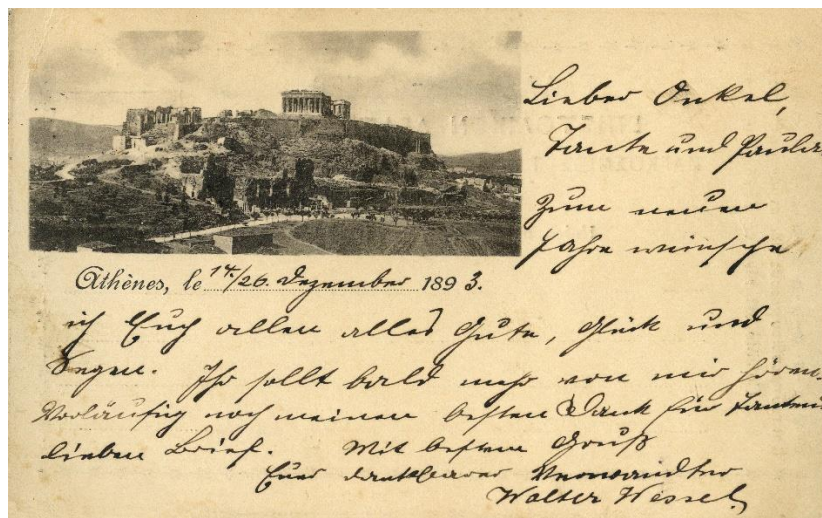 Lieber Onkel,
Tante und Paula
Zum neuen
Jahre wünsche
Athènes, le 14./26. Dezember 1893.
ich Euch allen alles Gute, Glück und
Segen. Ihr sollt bald mehr von mir hören.
Vorläufig noch meinen besten Dank für
lieben Brief. Mit bestem Gruß
Euer dankbarer Verwandter
Walter Wessel